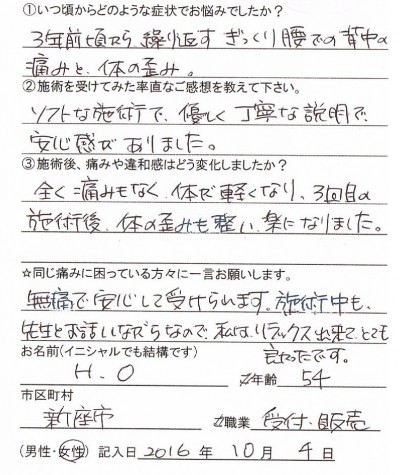 ①いつ頃からどのような症状でお悩みでしたか？
3年前頃から繰り返すぎっくり腰での背中の
痛みと、体の歪み。
②施術を受けてみた率直なご感想を教えて下さい。
ソフトな施術で、優しく丁寧な説明で
安心感がありました。
③施術後、痛みや違和感はどう変化しましたか？
全く痛みもなく、体が軽くなり、3回目の
施術後、体の歪みも整い、楽になりました。
☆同じ痛みに困っている方々に一言お願いします。
無痛で安心して受けられます。施術中も、
先生とお話しながらなので、私は、リラックス出来て、とても
良かったです。
お名前(イニシャルでも結構です)
H.O 年齢 54
市区町村
新座市 職業 受付・販売
(男性・女性) 記入日 2016 年 10 月 4 日